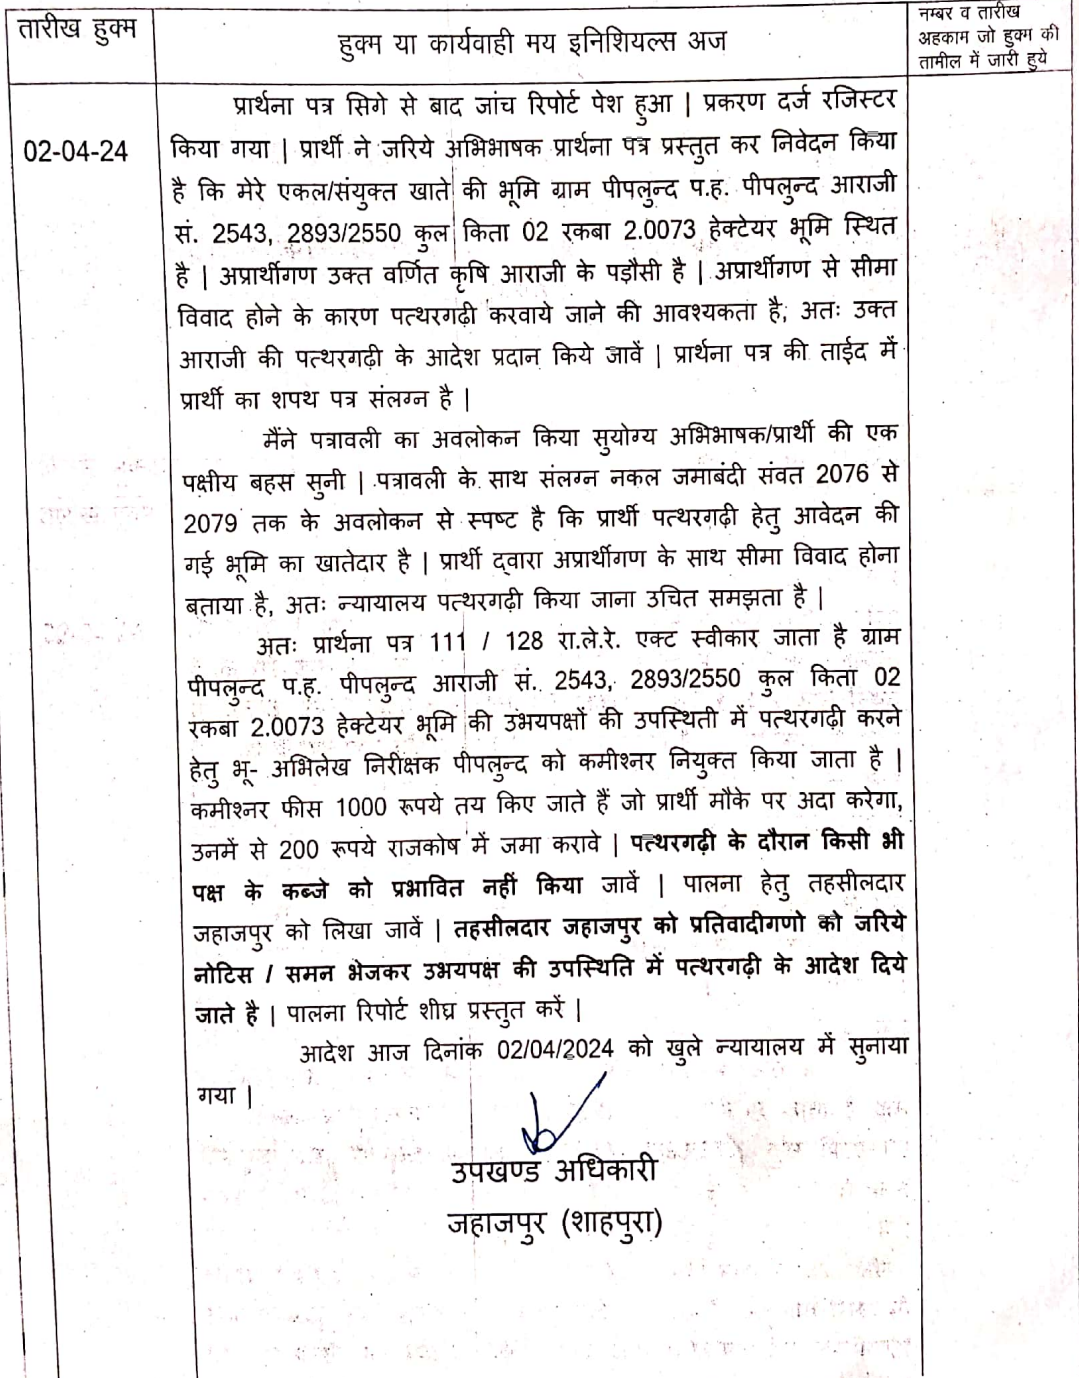 तारीख हुक्म
हुक्म या कार्यवाही मय इनिशियल्स अज
नम्बर व तारीख
अहकाम जो हुक्म की
तामील में जारी हुये
02-04-24
प्रार्थना पत्र सिगे से बाद जांच रिपोर्ट पेश हुआ | प्रकरण दर्ज रजिस्टर
किया गया | प्रार्थी ने जरिये अभिभाषक प्रार्थना पत्र प्रस्तुत कर निवेदन किया
है कि मेरे एकल/संयुक्त खाते की भूमि ग्राम पीपलुन्द प.ह. पीपलुन्द आराजी
सं. 2543, 2893/2550 कुल किता 02 रकबा 2.0073 हेक्टेयर भूमि स्थित
है | अप्रार्थीगण उक्त वर्णित कृषि आराजी के पड़ौसी है | अप्रार्थीगण से सीमा
विवाद होने के कारण पत्थरगढी करवाये जाने की आवश्यकता है, अतः उक्त
आराजी की पत्थरगढ़ी के आदेश प्रदान किये जावें | प्रार्थना पत्र की ताईद में
प्रार्थी का शपथ पत्र संलग्न है |
मैंने पत्रावली का अवलोकन किया सुयोग्य अभिभाषक/प्रार्थी की एक
पक्षीय बहस सुनी | पत्रावली के साथ संलग्न नकल जमाबंदी संवत 2076 से
2079 तक के अवलोकन से स्पष्ट है कि प्रार्थी पत्थरगढ़ी हेतु आवेदन की
गई भूमि का खातेदार है | प्रार्थी द्वारा अप्रार्थीगण के साथ सीमा विवाद होना
बताया है, अतः न्यायालय पत्थरगढ़ी किया जाना उचित समझता है |
अतः प्रार्थना पत्र 111 / 128 रा.ले.रे. एक्ट स्वीकार जाता है ग्राम
पीपलुन्द प.ह. पीपलुन्द आराजी सं. 2543, 2893/2550 कुल किता 02
रकबा 2.0073 हेक्टेयर भूमि की उभयपक्षों की उपस्थिती में पत्थरगढ़ी करने
हेतु भू- अभिलेख निरीक्षक पीपलुन्द को कमीश्नर नियुक्त किया जाता है |
कमीश्नर फीस 1000 रूपये तय किए जाते हैं जो प्रार्थी मौके पर अदा करेगा,
उनमें से 200 रूपये राजकोष में जमा करावे | पत्थरगढ़ी के दौरान किसी भी
पक्ष के कब्जे को प्रभावित नहीं किया जावें | पालना हेतु तहसीलदार
जहाजपुर को लिखा जावें | तहसीलदार जहाजपुर को प्रतिवादीगणो को जरिये
नोटिस / समन भेजकर उभयपक्ष की उपस्थिति में पत्थरगढ़ी के आदेश दिये
जाते है | पालना रिपोर्ट शीघ्र प्रस्तुत करें |
आदेश आज दिनांक 02/04/2024 को खुले न्यायालय में सुनाया
गया |
उपखण्ड अधिकारी
जहाजपुर (शाहपुरा)